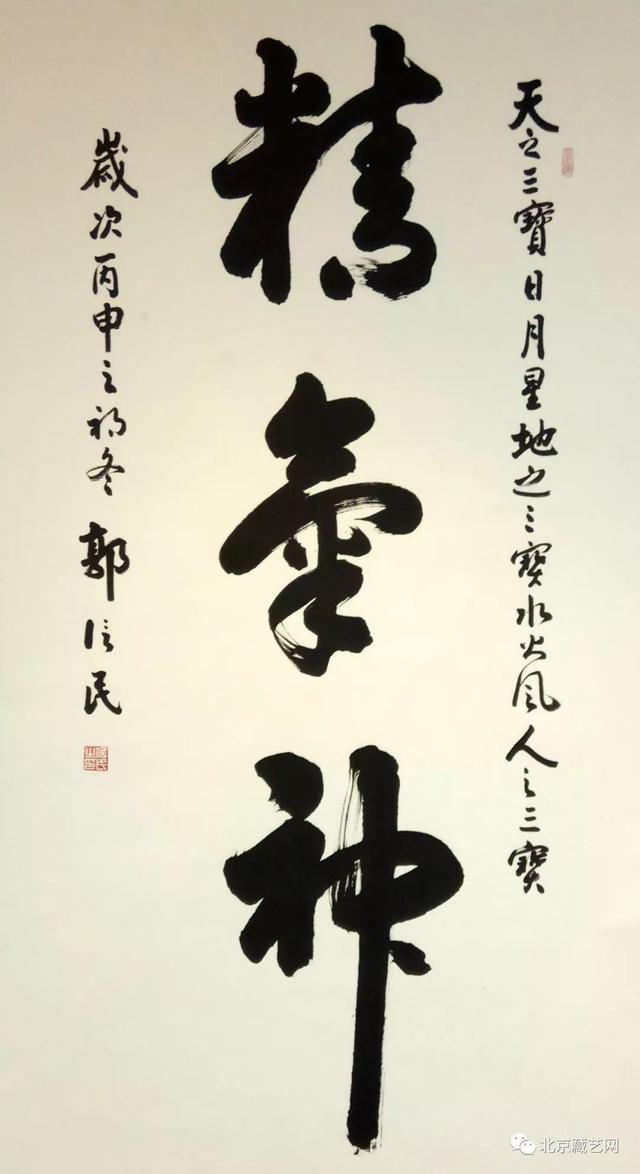 天之三寶日月星地之三寶水火风人之三寶
精氣神
歲次丙申之初冬 郭信民
北京藏艺网